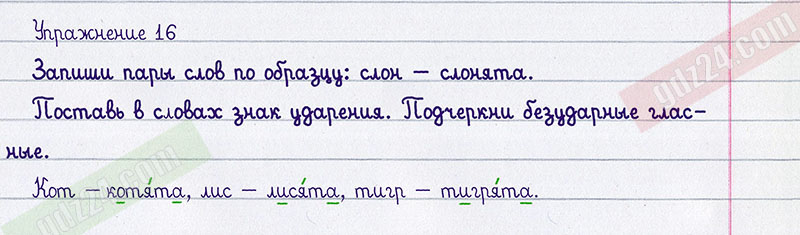 Упражнение 16
Запиши пары слов по образцу: слон – слонята.
Поставь в словах знак ударения. Подчеркни безударные глас-
ные.
Кот – котя́та, лис – лися́та, тигр – тигря́та.
gdz24.com
gdz24.com